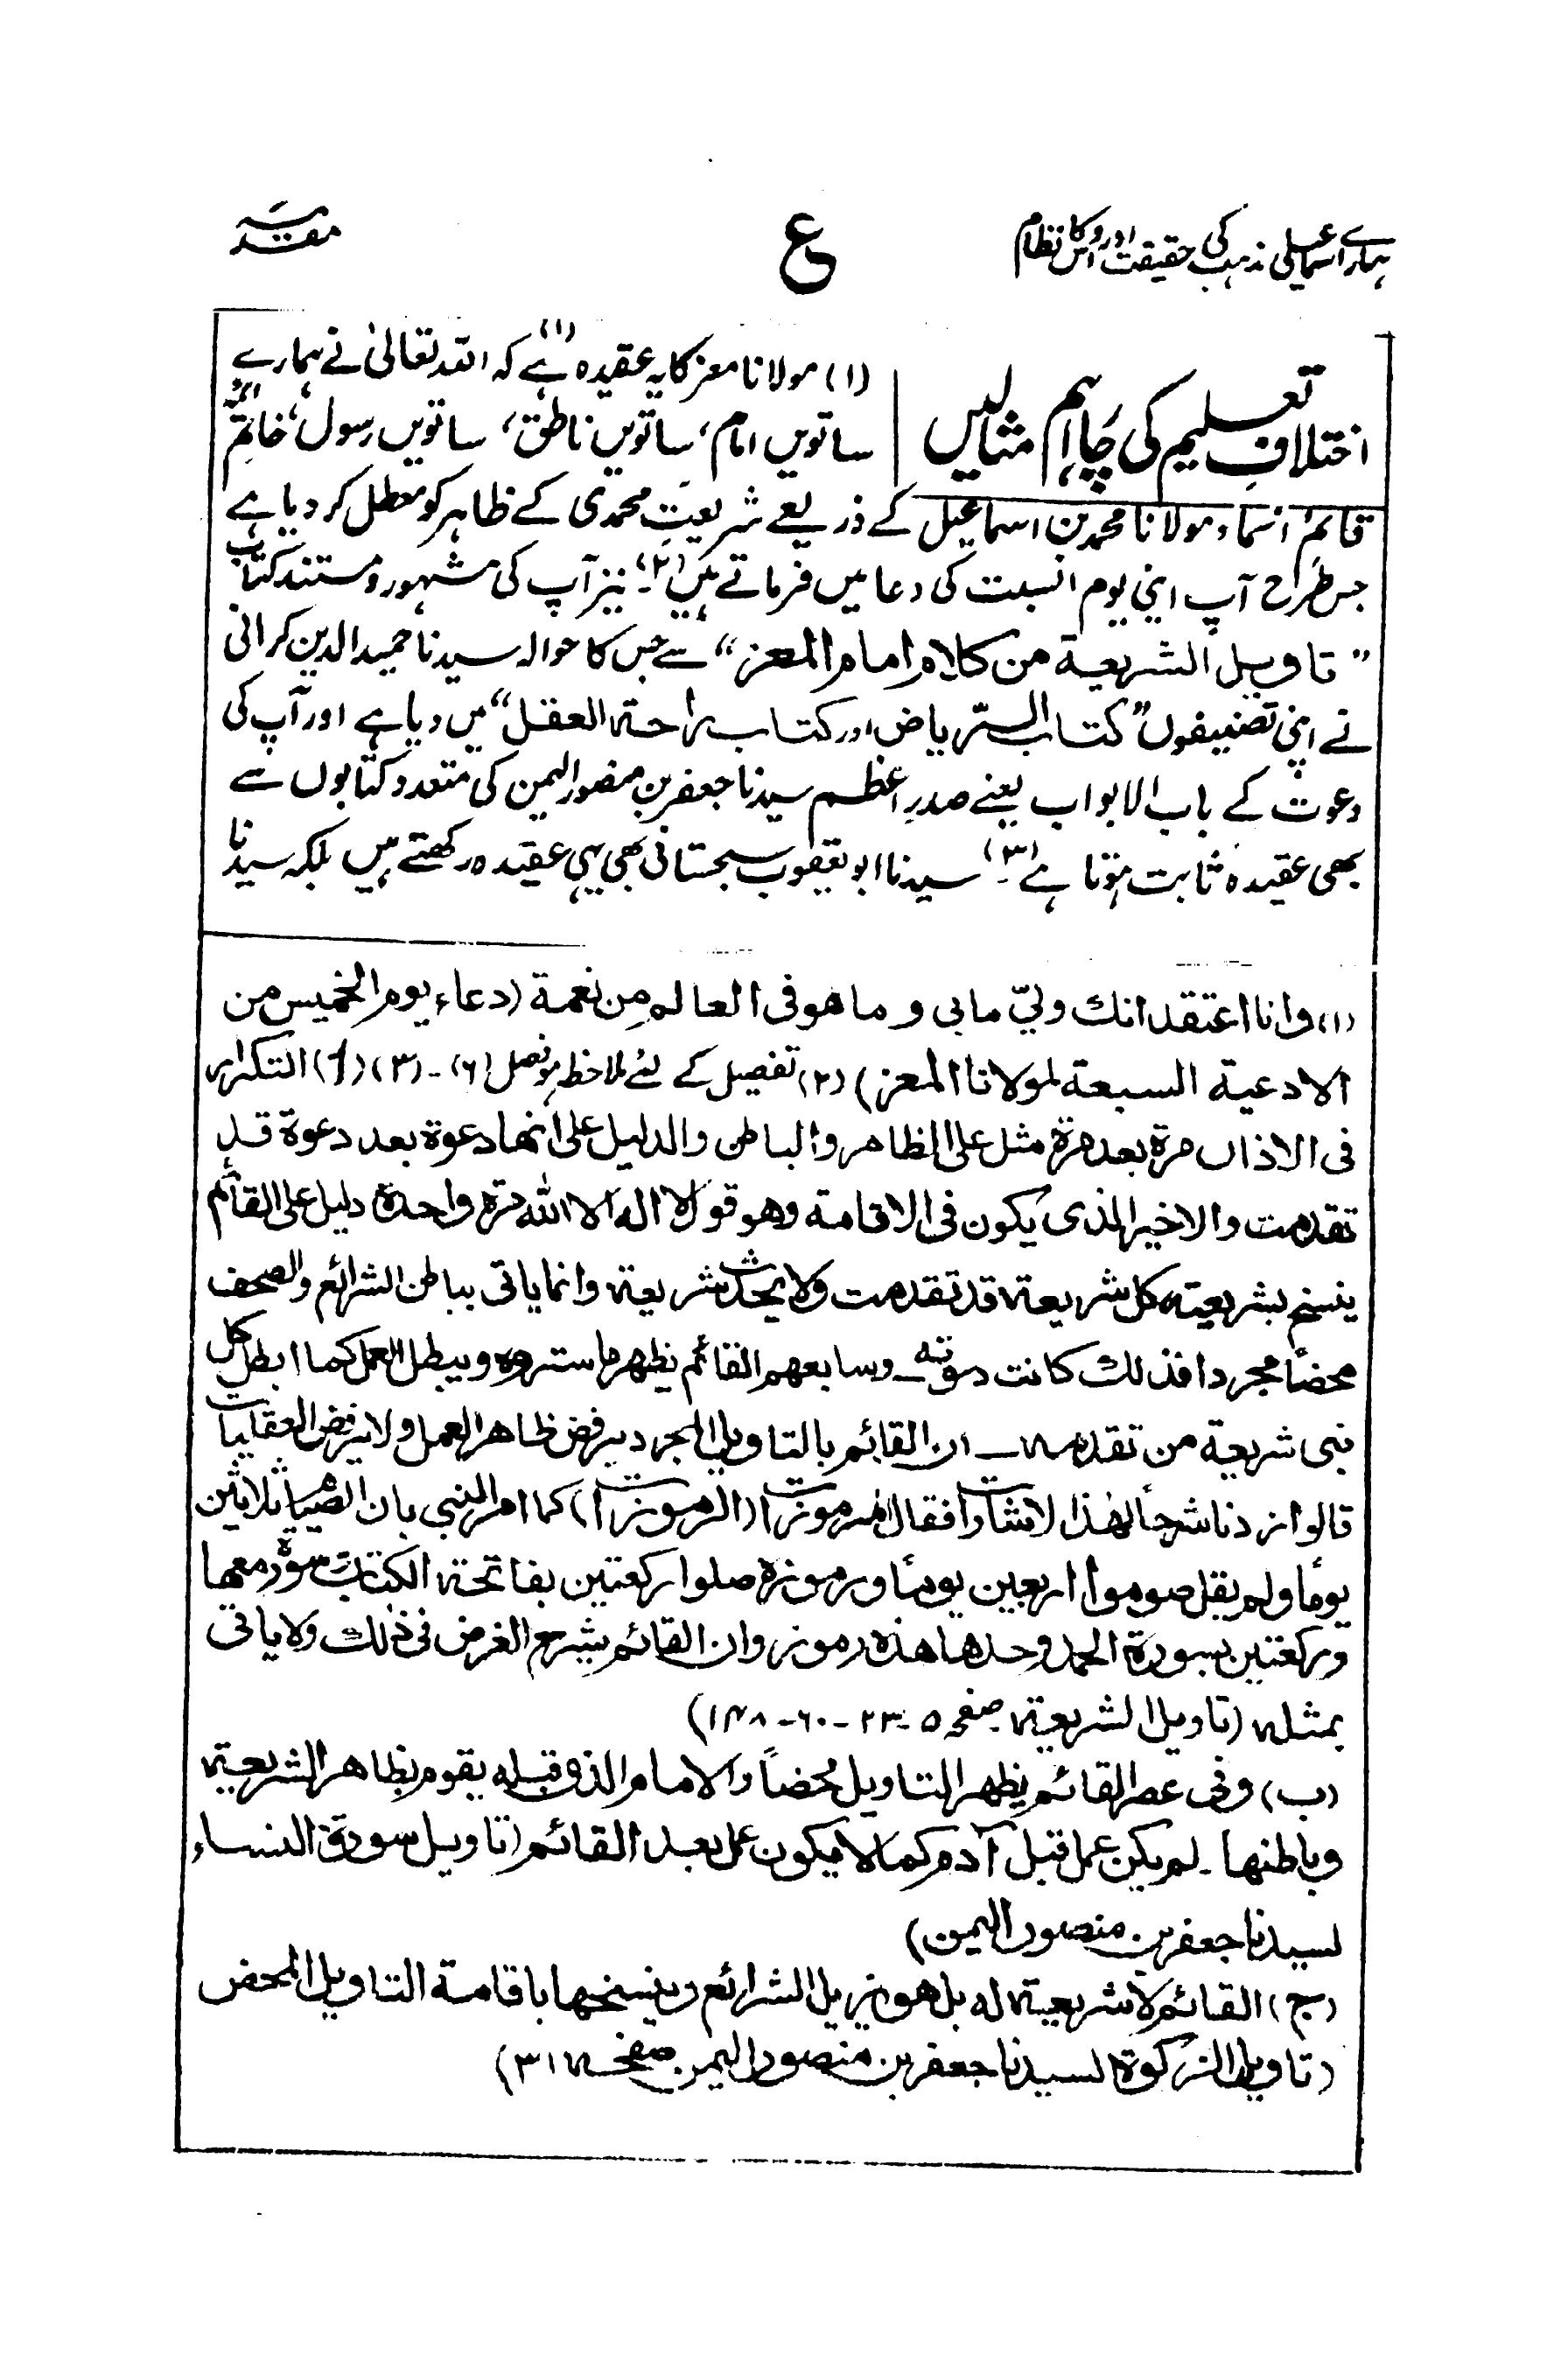 ہمارے اسماعیلی مذہب کی حقیقت اور اس کا نظام
ع
مقدمہ
اختلافِ تعلیم کی چار اہم مثالیں
(۱) مولانا معز کا یہ عقیدہ (۱) ہے کہ اللہ تعالیٰ نے ہمارے
ساتویں امام، ساتویں ناطق، ساتویں رسول، خاتمِ ائمہ
قائم اسماء مولانا محمد بن اسماعیل کے ذریعے شریعتِ محمدی کے ظاہر کو معطل کر دیا ہے
جس طرح آپ اپنی یوم السبت کی دعا میں فرماتے ہیں (۲)۔ نیز آپ کی مشہور و مستند کتاب
” تاویل الشریعة من کلام امام المعز“ سے جس کا حوالہ سیدنا حمید الدین کرمانی
نے اپنی تصنیفوں ”کتاب الریاض اور کتاب راحة العقل“ میں دیا ہے اور آپ کی
دعوت کے باب الابواب یعنے صدرِ اعظم سیدنا جعفر بن منصور الیمن کی متعدد کتابوں سے
بھی عقیدہ ثابت ہوتا ہے (۳)۔ سیدنا ابو یعقوب سجستانی بھی یہی عقیدہ رکھتے ہیں بلکہ سیدنا
(۱) وانا اعتقد انک ولیّ مابی وماھو فی العالم من نعمة (دعاء یوم الخمیس من
الادعیة السبعة لمولانا المعز) (۲) تفصیل کے لئے ملاحظہ ہو فصل (۶)۔ (۳) (ا) التکرار
فی الاذان مرة بعد مرة مثل علی الظاھر والباطن والدلیل علی انھا دعوة بعد دعوة قد
تقدمت والاخیر الذی یکون فی الاقامة وھو قول لا الہ الا اللہ مرة واحدة دلیل علی القائم
ینسخ بشریعتہ کل شریعة قد تقدمت ولا یحدث شریعة وانما یاتی بباطن الشرائع والصحف
محضاً مجردا فذلک کانت مرتبہ۔ وسابعھم القائم یظھر ما ستروہ ویبطل العمل کما ابطل کل
نبی شریعة من تقدمہ۔ ان القائم بالتاویل المجرد یرفض ظاھر العمل ولا یرفض العقلیات
قالوا زدنا شرحاً لھٰذا الاشارات فقال المرموزات (الرموزات) کما امر النبی بان الصیام ثلاثین
یوماً ولم یقل صوموا اربعین یوماً ورموزہ صلوا رکعتین بفاتحة الکتاب وسورة معھا
ورکعتین بسورة الحمد وحدھا ھذہ رموز وان القائم یشرح الغرض فی ذٰلک ولا یاتی
بمثلہ (تاویل الشریعة۔ صفحہ ۵-۲۳-۶۰-۱۴۸)
(ب) وفی عصر القائم یظھر التاویل محضاً والامام الذی قبلہ یقوم بظاھر الشریعة
وباطنھا۔ لم یکن عمل قبل آدم کما لا یکون عمل بعد القائم (تاویل سورة النساء
لسیدنا جعفر بن منصور الیمن)
(ج) القائم لا شریعة لہ بل ھو یزیل الشرائع وینسخھا باقامة التاویل المحض
(تاویل الزکوة لسیدنا جعفر بن منصور الیمن صفحہ ۳۱)